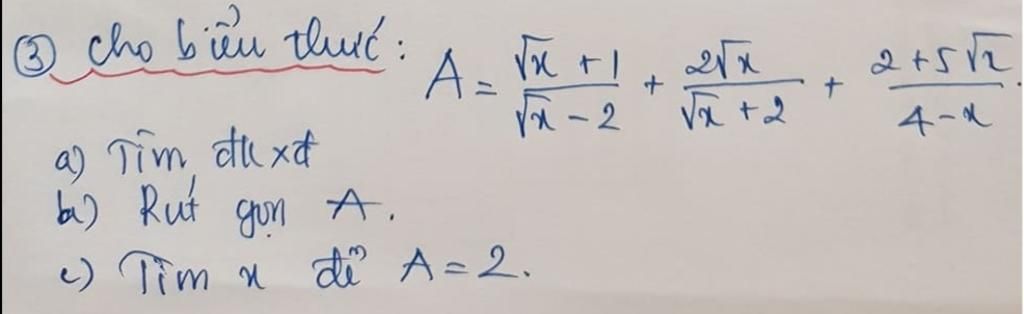 ③ Cho biểu thức: A = \frac{\sqrt{x} + 1}{\sqrt{x} - 2} + \frac{2\sqrt{x}}{\sqrt{x} + 2} + \frac{2 + 5\sqrt{x}}{4 - x}.
a) Tìm đkxđ
b) Rút gọn A.
c) Tìm x để A = 2.